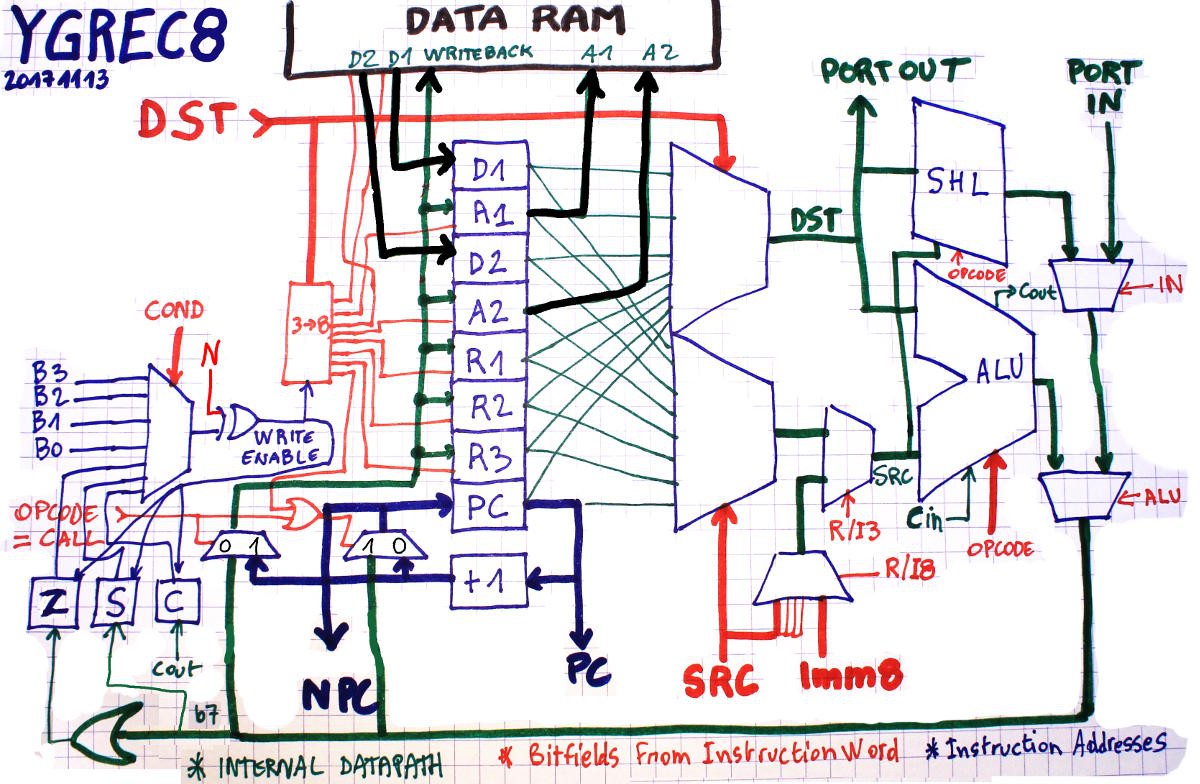 YGREC8
20171113
DATA RAM
D2 D1 WRITEBACK A1 A2
DST
PORT OUT
PORT
IN
D1
A1
D2
A2
R1
R2
R3
PC
+1
SHL
DST
OPCODE
Cout
IN
ALU
3→8
COND
N
B3
B2
B1
B0
WRITE
ENABLE
SRC
Cin
OPCODE
ALU
R/I3
R/I8
OPCODE
= CALL
0 1
1 0
Z
S
C
Cout
NPC
PC
SRC
Imm8
b7
* INTERNAL DATAPATH
* Bitfields From Instruction Word
* Instruction Addresses